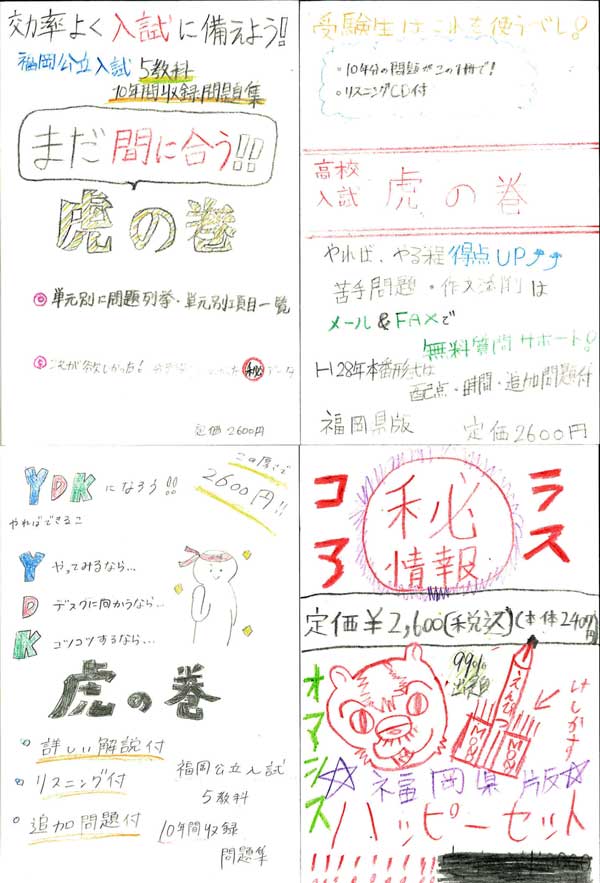 効率よく入試に備えよう!!
福岡公立入試 5教科
10年間収録問題集
まだ間に合う!!
虎の巻
単元別に問題列挙・単元別項目一覧
これが欲しかった!
㊙データ
定価2600円
受験生はこれを使うべし!
・10年分の問題がこの1冊で!
・リスニングCD付
高校
入試
虎の巻
やれば、やる程得点UP↗↗
苦手問題・作文添削は
メール&FAXで
無料質問サポート!
H28年本番形式は
配点・時間・追加問題付
福岡県版 定価2600円
YDKになろう!!
やればできるこ
この厚さで
2600円!!
Y やってみるなら...
D デスクに向かうなら...
K コツコツするなら...
虎の巻
詳しい解説付
リスニング付
追加問題付
福岡公立入試
5教科
10年間収録
問題集
コア
ラス
秘
情報
定価¥2,600(税込)(本体2407円)
オマシス
99%
えんぴつ
MON
MON
けしかす
☆福岡県版☆
ハッピーセット